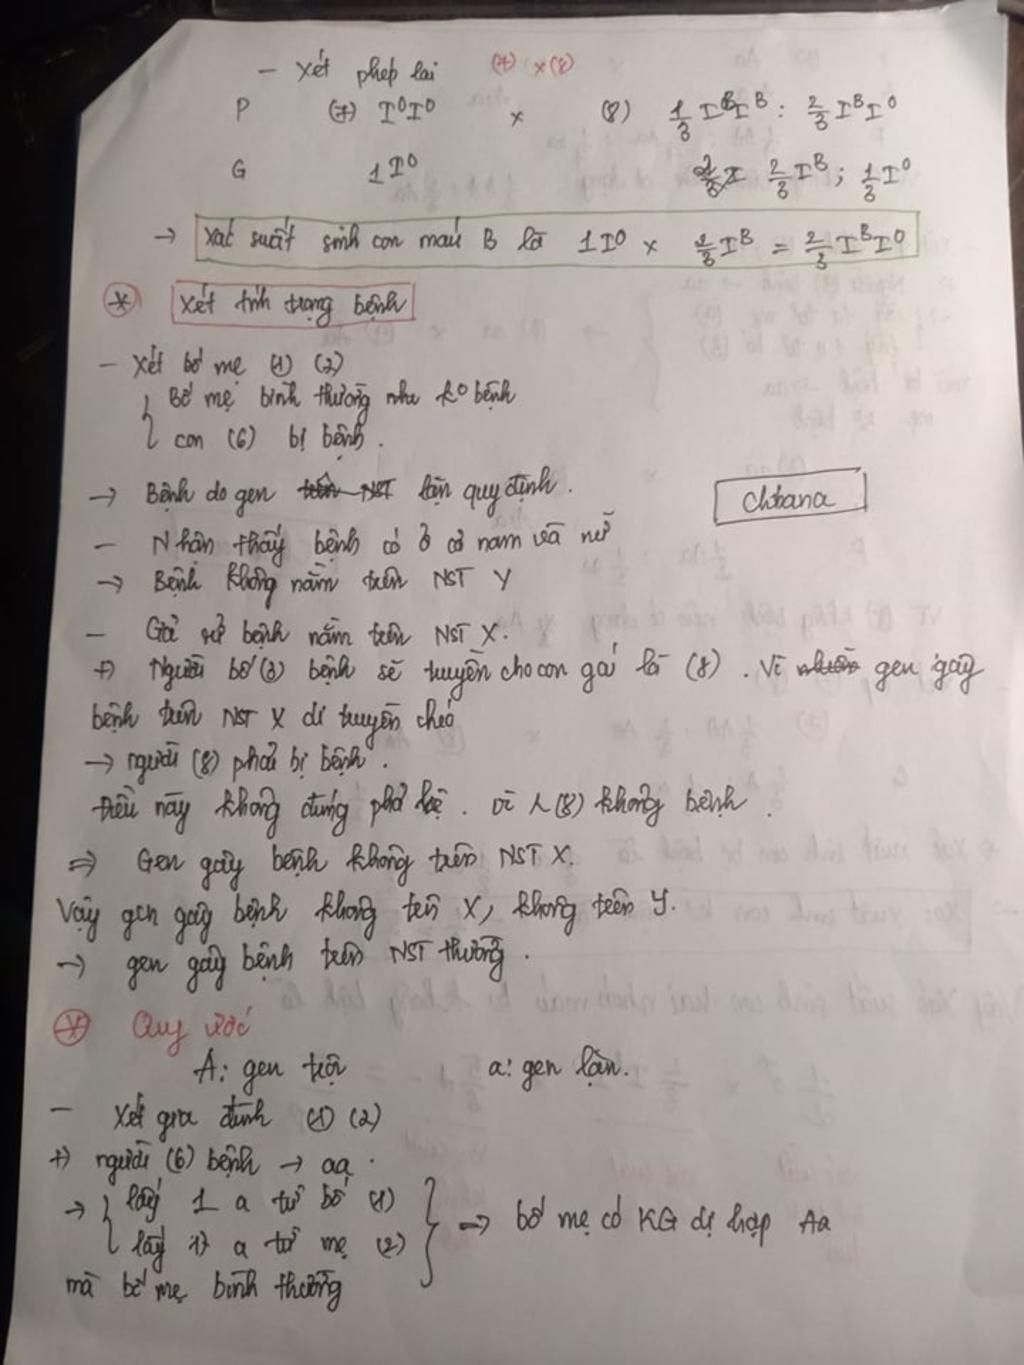 - Xét phép lai (7) x (8)
P (7) IᴼIᴼ x (8) 1/3 IᴮIᴮ : 2/3 IᴮIᴼ
G 1Iᴼ 2/3 Iᴮ; 1/3 Iᴼ
→ Xác suất sinh con máu B là 1Iᴼ x 2/3 Iᴮ = 2/3 IᴮIᴼ
* Xét tính trạng bệnh
- Xét bố mẹ (1) (2)
{ Bố mẹ bình thường như ko bệnh
con (6) bị bệnh.
→ Bệnh do gen trên NST lặn quy định.
chibana
- Nhận thấy bệnh có ở cả nam và nữ
→ Bệnh không nằm trên NST Y
- Giả sử bệnh nằm trên NST X.
+) Người bố (3) bệnh sẽ truyền cho con gái là (8). Vì gen gây
bệnh trên NST X di truyền chéo
→ người (8) phải bị bệnh.
Điều này không đúng phả hệ. vì (8) không bệnh.
⇒ Gen gây bệnh không trên NST X.
Vậy gen gây bệnh không trên X, không trên Y.
→ gen gây bệnh trên NST thường.
* Quy ước
A: gen trội a: gen lặn.
- Xét gia đình (1) (2)
+) người (6) bệnh → aa.
→ { lấy 1 a từ bố (1)
lấy 1 a từ mẹ (2) } → bố mẹ có KG dị hợp Aa
mà bố mẹ bình thường